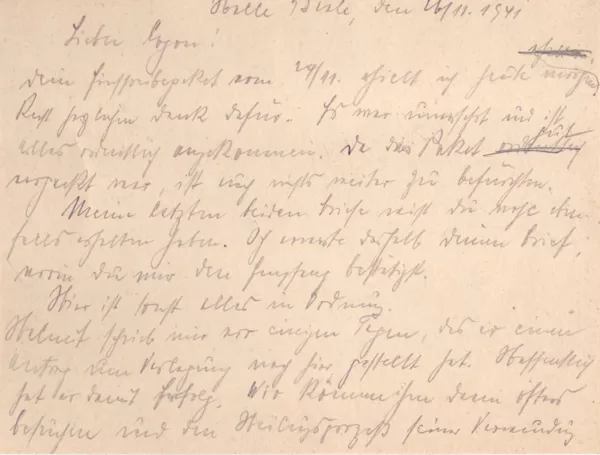 Halle /Saale, den 26/11. 1941
Lieber Egon!
Dein Einschreibepaket vom 24/11. erhielt ich heute morgen.
Recht herzlichen Dank dafür. Es war unversehrt und ist
alles ordentlich angekommen. Da das Paket gut
verpackt war, ist auch nichts weiter zu befürchten.
Meine letzten beiden Briefe wirst du wohl eben
falls erhalten haben. Ich erwarte deshalb deinen Brief,
worin du mir den Empfang bestätigst.
Hier ist sonst alles in Ordnung.
Helmut schrieb mir vor einigen Tagen, das er einen
Antrag um Verlegung nach hier gestellt hat. Hoffentlich
hat er damit Erfolg. Wir können ihn dann öfters
besuchen und den Heilungsprozeß seiner Verwundung